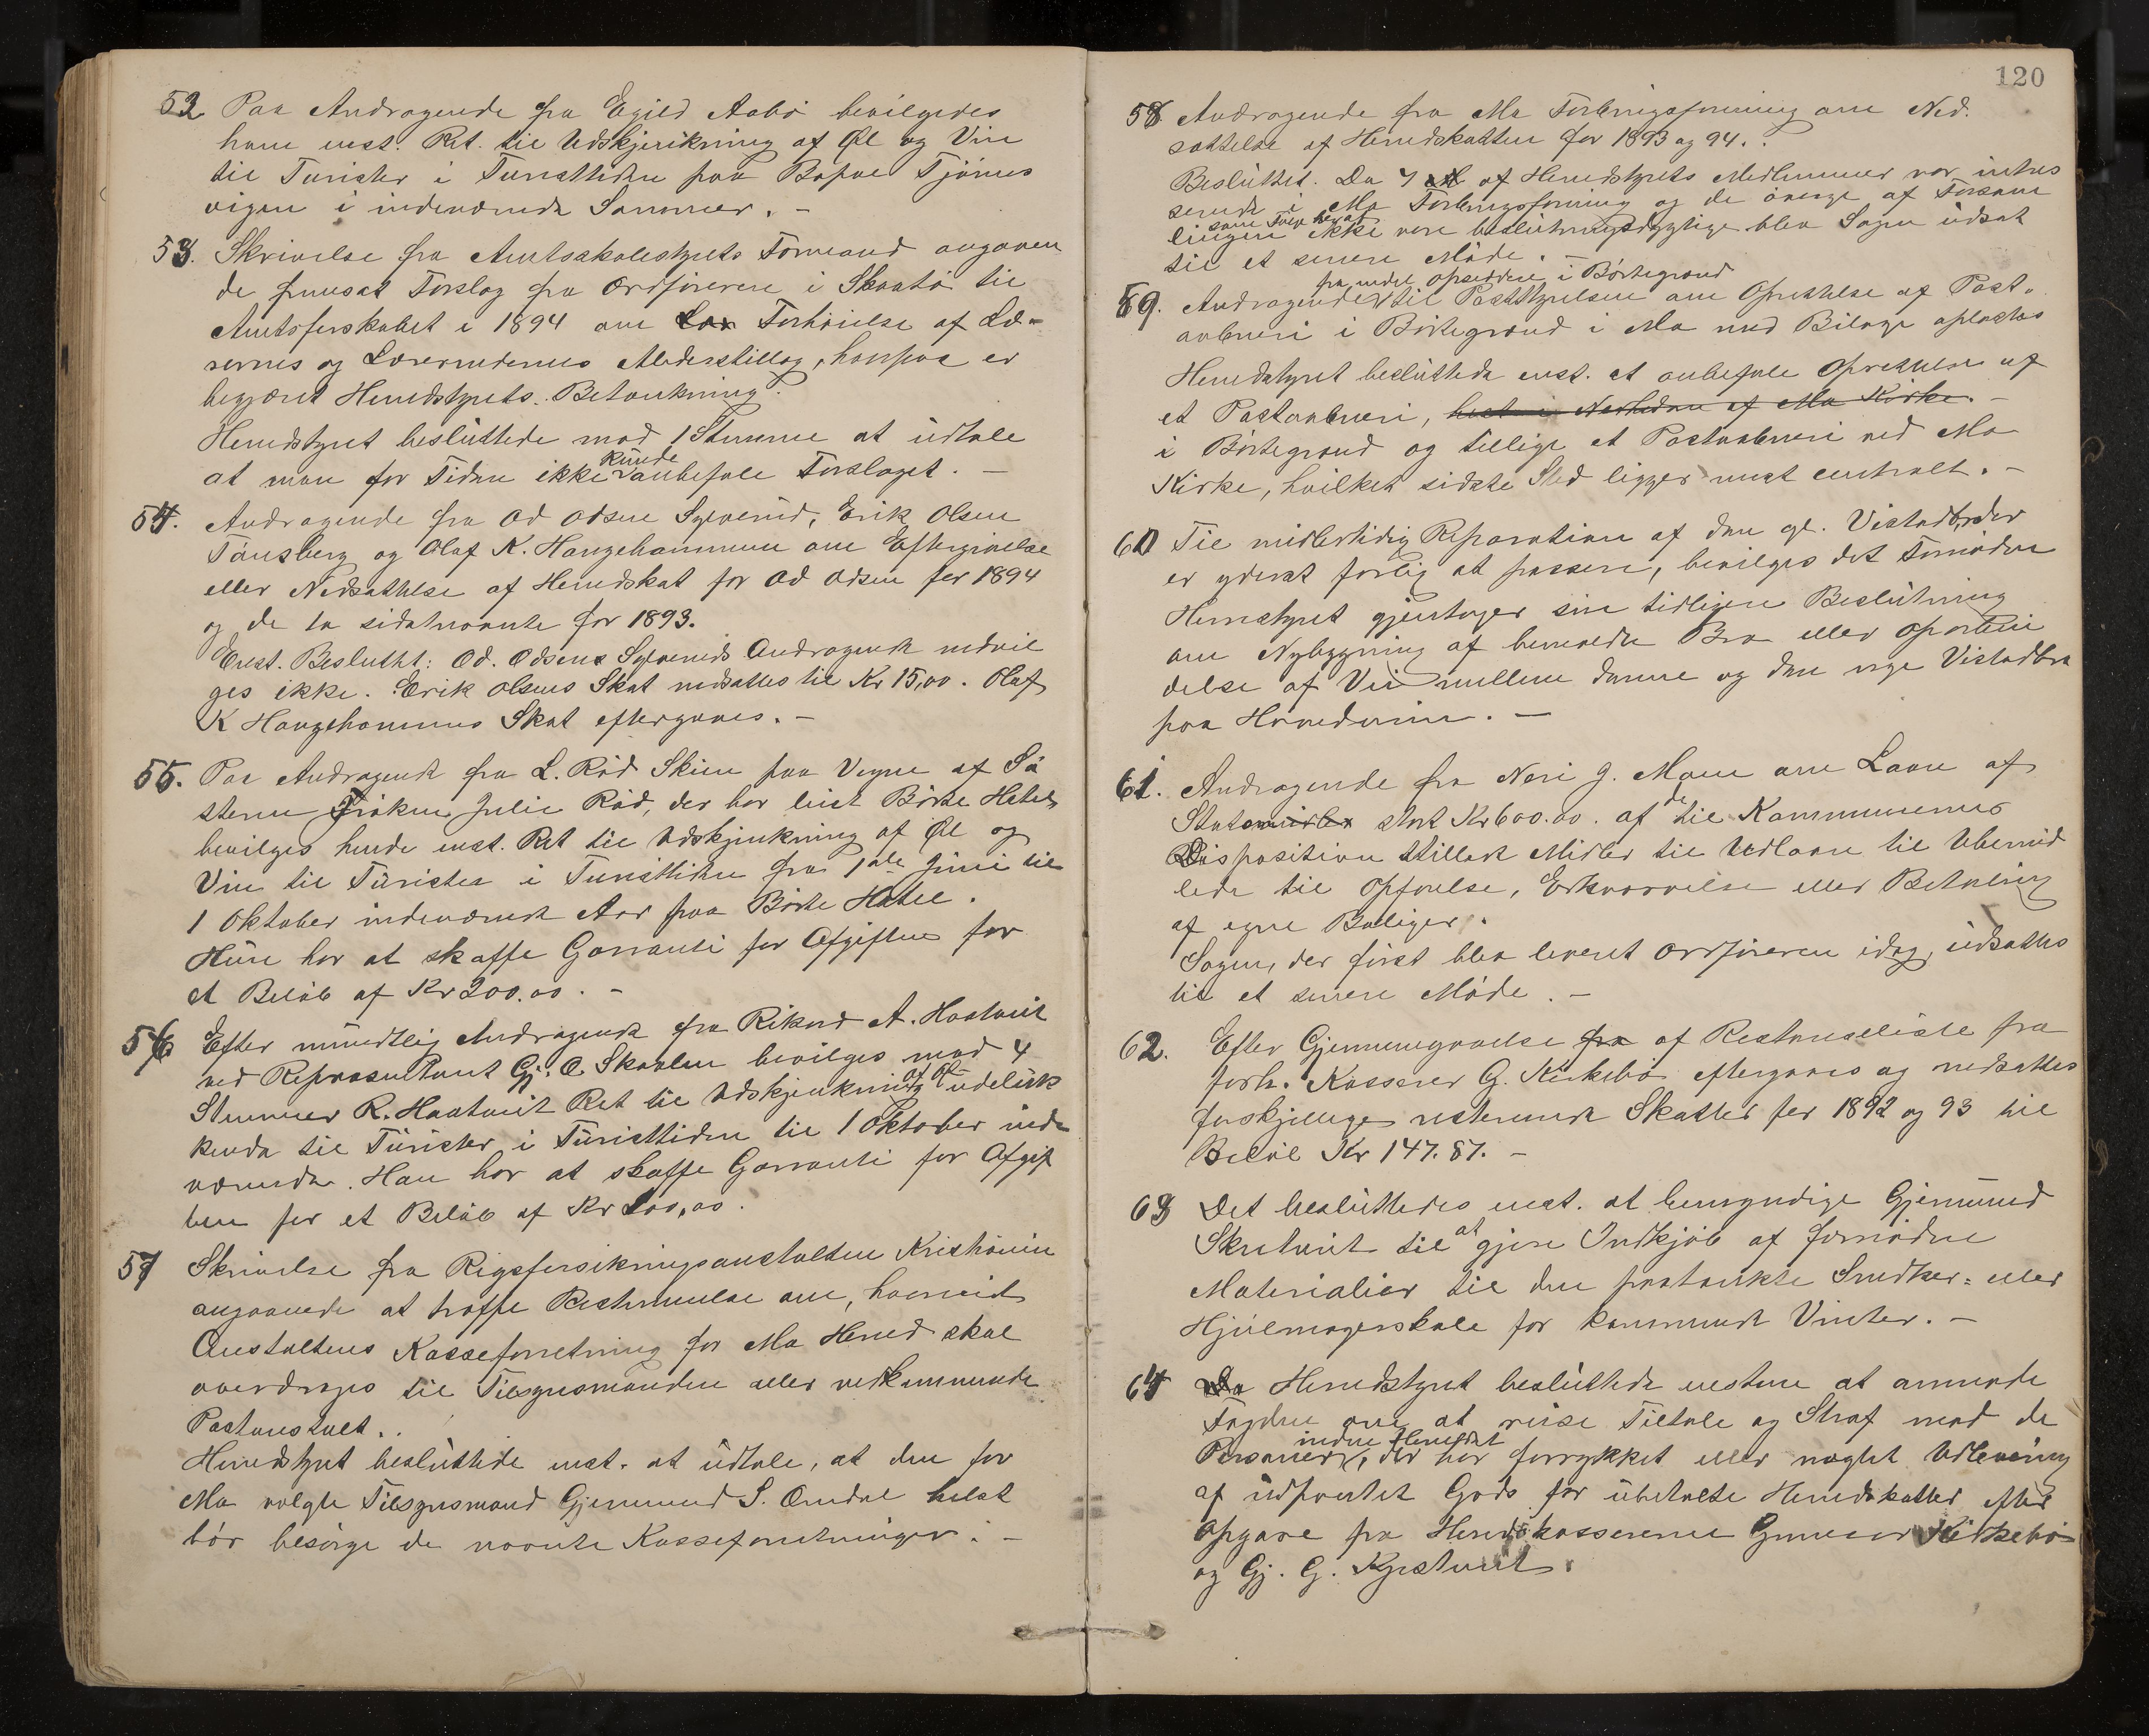 52 Paa Andragende fra Egild Aabö bevilgedes
ham enst. Ret til Udskjenkning af Øl og Vin
til Turister i Turisttiden paa
vigen i indeværende Sommer. –
53. Skrivelse fra Amtsskolestyrets Formand angaaen
de fremsat Forslag fra Ordföreren i Skaatö til
Amtsforskabet i 1894 om Forhöielse af Læ-
rernes og Lærerindernes Alderstillæg, hvorpaa er
begjæret Herredstyrets Betænkning.
Herredstyret besluttede mod 1 Stemme at udtale
at man for Tiden ikke kunde anbefale Forslaget. –
54. Andragende fra Od Odsen Sylverud, Erik Olsen
Tönsberg og Olaf K. Haugehammeren om Eftergivelse
eller Nedsættelse af Herredskat for Od Odsen for 1894
og de to sidstnævnte for 1893.
Enst. Besluttet: Od. Odsens Sylveruds Andragende indvil
ges ikke. Erik Olsens Skat nedsattes til Kr 15,00. Olaf
K Haugehammers Skat eftergaves. –
55. Paa Andragende fra L. Röd Skien paa Vegne af Sö
steren Fröken Julie Röd, der har leiet Börte Hotel
bevilges hende enst. Ret til Udskjenkning af Øl og
Vin til Turister i Turisttiden fra 1ste Juni til
1 Oktober indeværende Aar paa Börte Hotel.
Hun har at skaffe Garranti for Afgiften for
et Belöb af Kr 200.00. –
56 Efter mundtlig Andragende fra Rikard A. Haatveit
ved Repræsentant Gj. O. Skaalen bevilges mod 4
Stemmer R. Haatveit Ret til Udskjenkning af Øl udeluk
kende til Turister i Turisttiden til 1 Oktober inde
værende. Han har at skaffe Garranti for Afgif
ten for et Belöb af Kr 200,00.
57 Skrivelse fra Rigsforsikringsanstalten Kristiania
angaaende at træffe Bestemmelse om, hvorvidt
Anstaltens Kasseforretning for Mo Herred skal
overdrages til Tilsynsmanden eller vedkommende
Postanstalt.
Herredstyret besluttede enst. at udtale, at den for
Mo valgte Tilsynsmand Gjermund S. Omdal helst
bör besörge de nævnte Kasseforretninger. –
120
58 Andragende fra Mo Forbrugsforening om Ned-
sættelse af Herredskatten for 1893 og 94.
Besluttet. Da 7 af Herredstyrets Medlemmer var intres
serede i Mo Forbrugsforening og de övrige af Forsam
lingen som Fölge heraf ikke vare beslutningsdygtige blev Sagen udsat
til et senere Möde. –
59. Andragende fra endel Opsiddere i Börtegrend til Poststyrelsen om Oprettelse af Post-
aabneri i Börtegrend i Mo med Bilage oplæstes
Herredstyret besluttede enst. at anbefale Oprettelse af
et Postaabneri, helst i Nærheden af Mo Kirke. –
i Börtegrend og tillige et Postaabneri ved Mo
Kirke, hvilket sidste Sted ligger mest centralt. –
60 Til midlertidig Reparation af den gl. Vistadbro der
er yderst farlig at passere, bevilges det Fornödne
Herredstyret gjentager sin tidligere Beslutning
om Nybygning af bemeldte Bro eller Oparbei
delse af Vei mellem denne og den nye Vistadbro
paa Hovedveien. –
61. Andragende fra Neri G. Moen om Laan af
Statsmidler stort Kr 600.00. af de til Kommunernes
Disposition stillede Midler til Udlaan til Ubemid
lede til Opförelse, Erhvervelse eller Betaling
af egne Boliger.
Sagen, der först blev leveret Ordföreren idag, udsattes
til et senere Möde. –
62. Efter Gjennemgaaelse fra af Restanseliste fra
forh. Kasserer G. Kirkebö eftergaves og nedsattes
forskjellige resterende Skatter for 1892 og 93 til
Belöb Kr 147.87. –
63 Det besluttedes enst. at bemyndige Gjermund
Skretveit til at gjøre Indkjöb af fornödne
Materialier til den paatænkte Snedker- eller
Hjulmagerskole for kommende Vinter. –
64 Da Herredstyret besluttede enstem at anmode
Fogden om at reise Tiltale og Straf mod de
Personer inden Herredet, der har forrykket eller nægtet Udlevering
af udpantet Gods for ubetalte Herredskatter efter
Opgave fra Herredskassererne Gunnar Kirkebö
og Gj. G. Kjestveit.